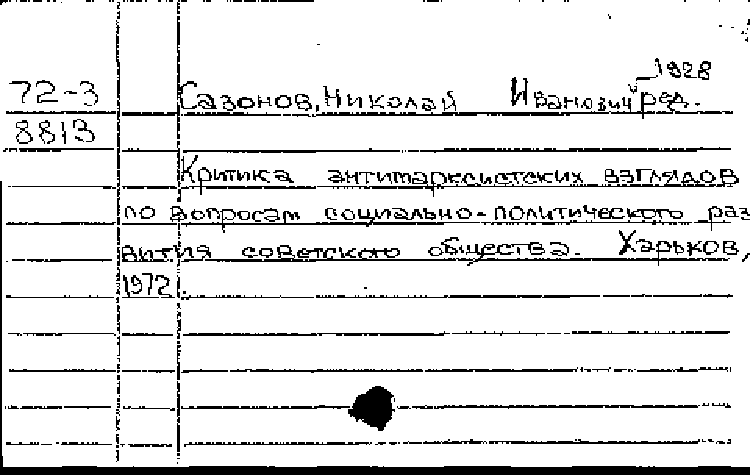 1928
72-3 Сазонов, Николай Иванович ред.
8813
Критика антимарксистских взглядов
по вопросам социально-политического раз
вития советского общества. Харьков,
1972.